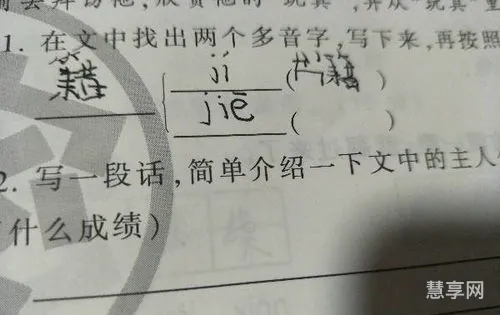 前去拜访他,欣赏他的"玩具",并从"玩具"里
1. 在文中找出两个多音字,写下来,再按照
籍 jí (书籍 )
jiē ( )
2. 写一段话,简单介绍一下文中的主人
什么成绩)
慧享网
www.weixiangwang.com